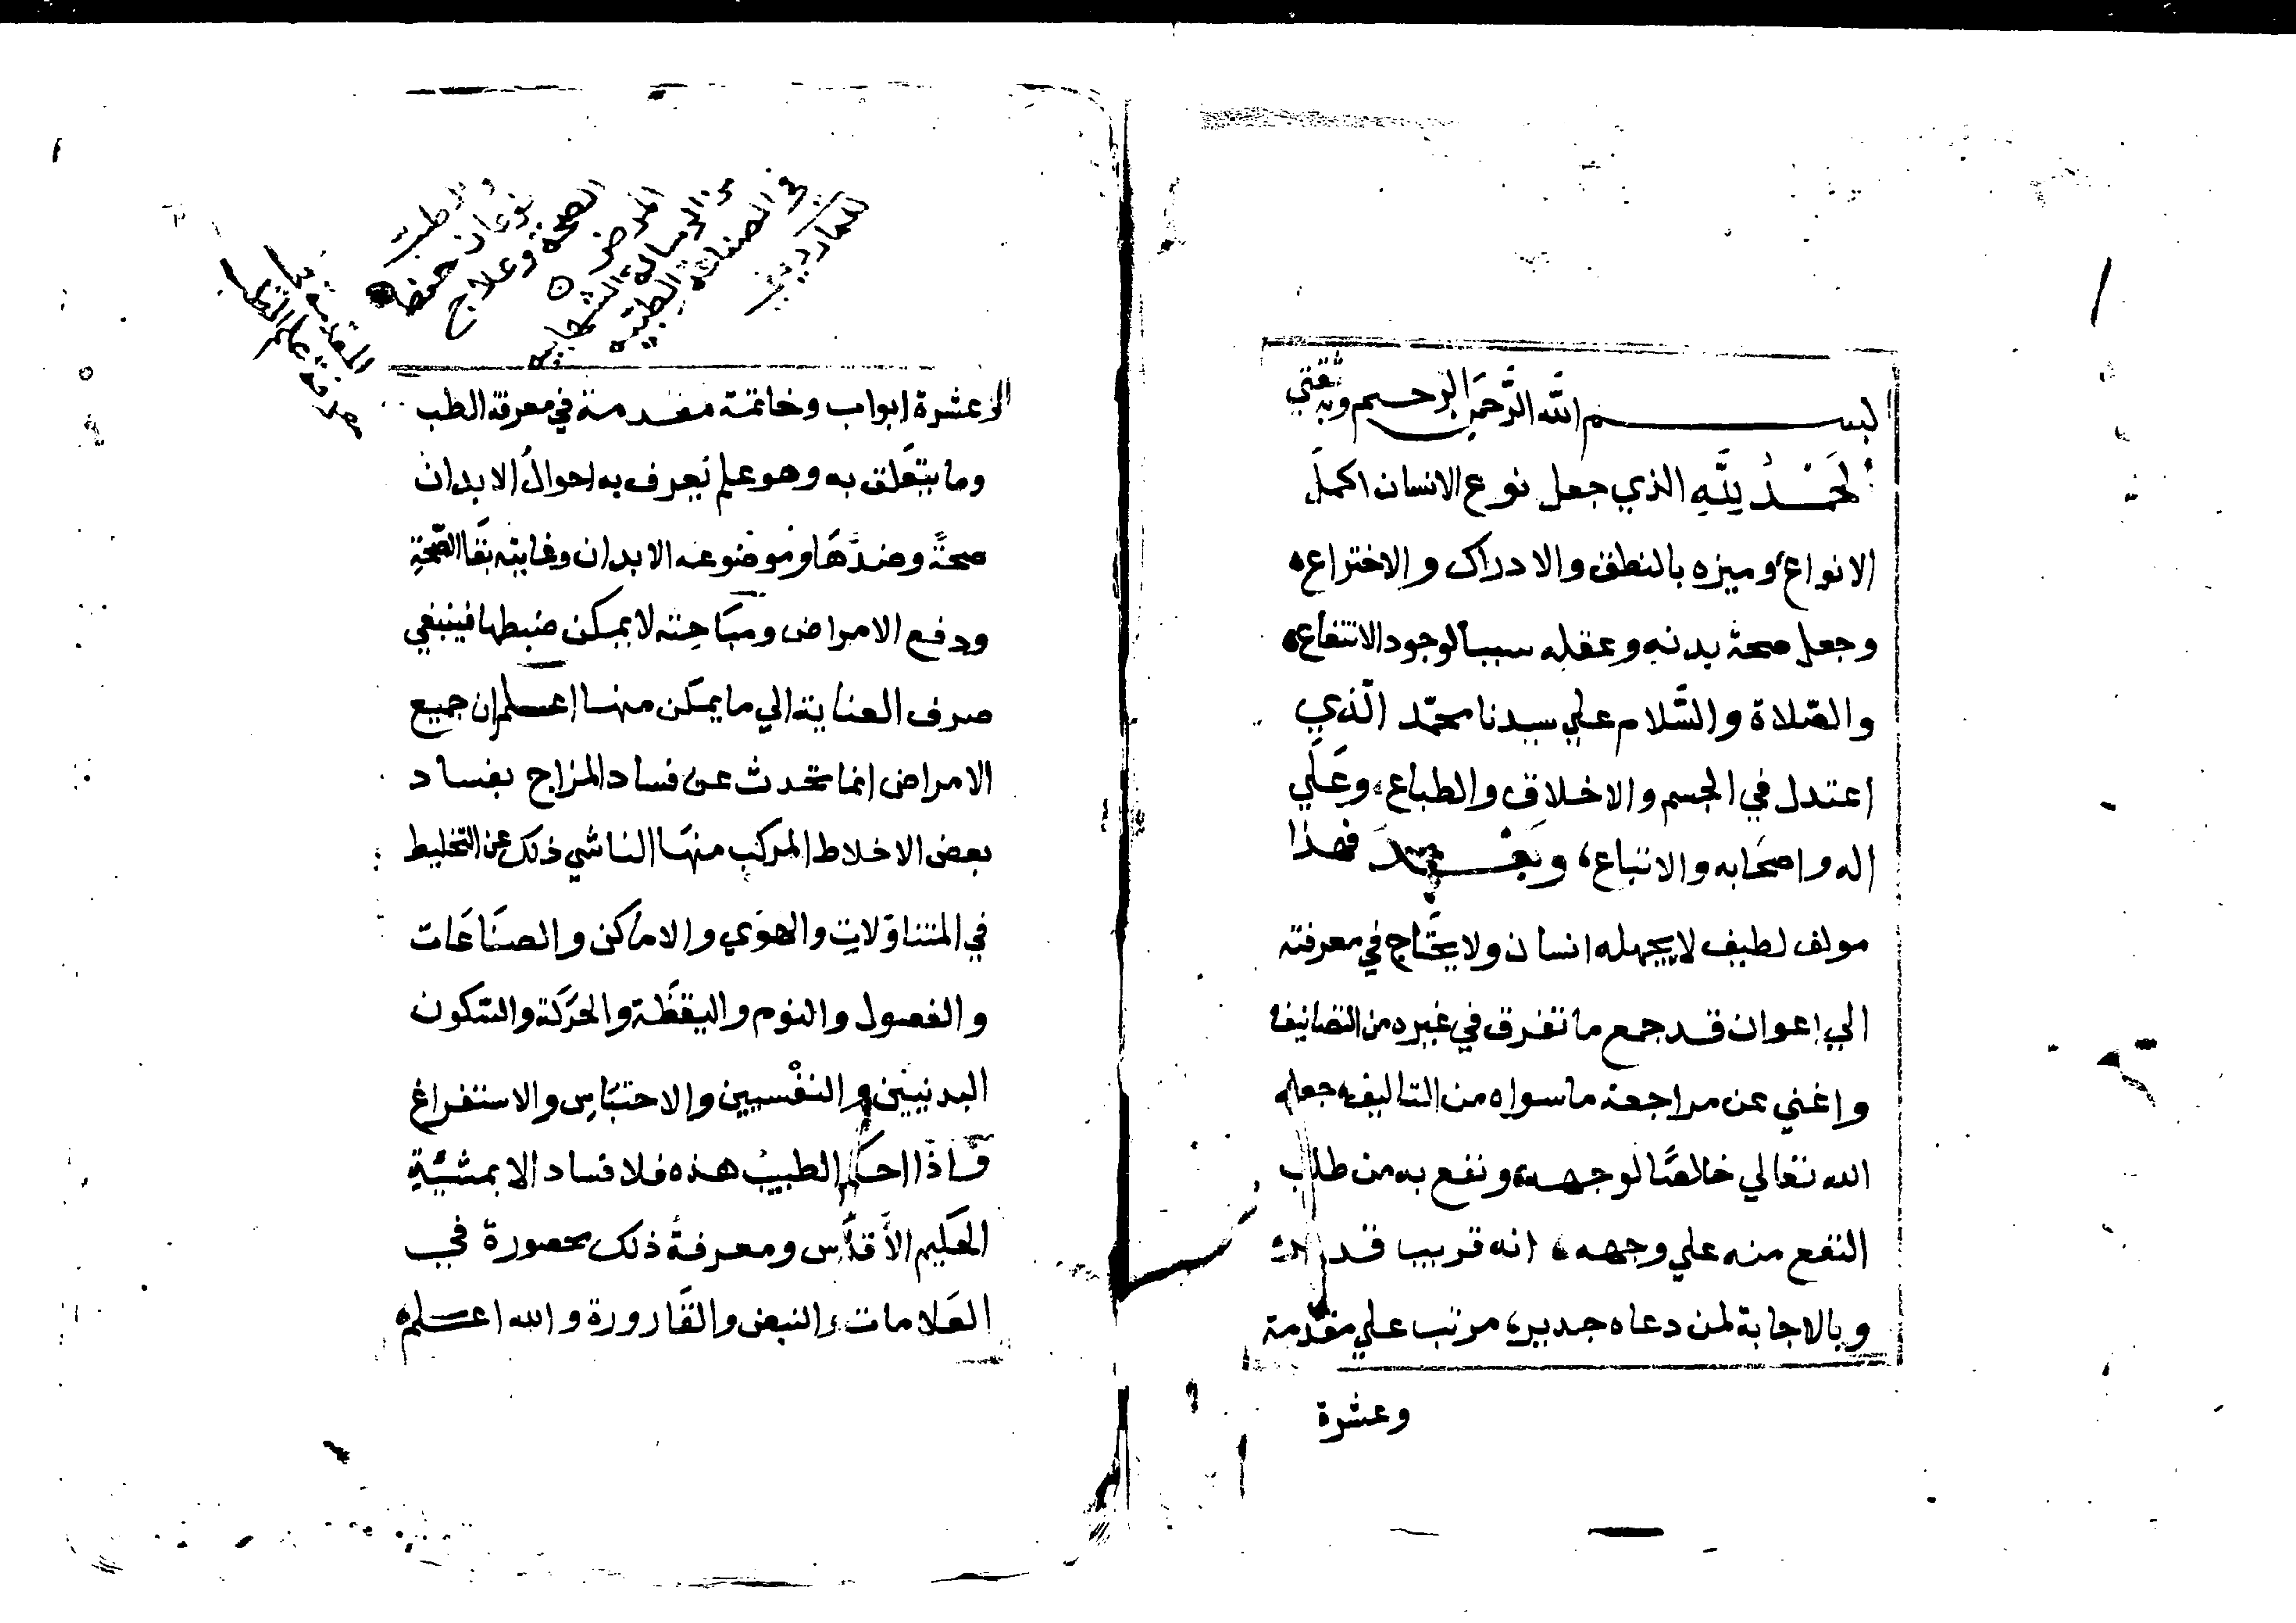 بسم الله الرحمن الرحيم وبه ثقتي
الحمد لله الذي جعل نوع الانسان اكمل
الانواع وميزه بالنطق والادراك والاختراع
وجعل صحة بدنه وعقله سببا لوجود الانتفاع
والصلاة والسلام علي سيدنا محمد الذي
اعتدل في الجسم والاخلاق والطباع وعلي
اله واصحابه والاتباع، وبعد فهذا
مولف لطيف لا يجهله انسان ولا يحتاج في معرفته
الي اعوان قد جمع ما تفرق في غيره من التصانيف
واغني عن مراجعة ما سواه من التاليف جعله
الله تعالي خالصا لوجهه ونفع به من طلب
النفع منه علي وجهه، انه قريب
وبالاجابة لمن دعاه جدير، مرتب علي مقدمة
وعشرة
والطب
نوعان حفظ
الصحة وعلاج
المرض
من الرسالة الشهابية
في الصناعة الطبية
للمارديني
وعشرة ابواب وخاتمة مقدمة في معرفة الطب
وما يتعلق به وهو علم تعرف به احوال الابدان
صحة وضدها وموضوعه الابدان وغايته بقا الصحة
ودفع الامراض ومباحثه لا يمكن ضبطها فينبغي
صرف العناية الي ما يمكن منها اعلم ان جميع
الامراض انما تحدث عن فساد المزاج بفساد
بعض الاخلاط المركب منها الناشي ذلك عن التخليط
في المتناولات والهوي والاماكن والصناعات
والفصول والنوم واليقظة والحركة والسكون
البدنيين والنفسيين والاحتباس والاستفراغ
فاذا احكم الطبيب هذه فلا فساد الا بمشيئة
الحكيم الأقدس ومعرفة ذلك محصورة في
العلامات والنبض والقارورة والله اعلم